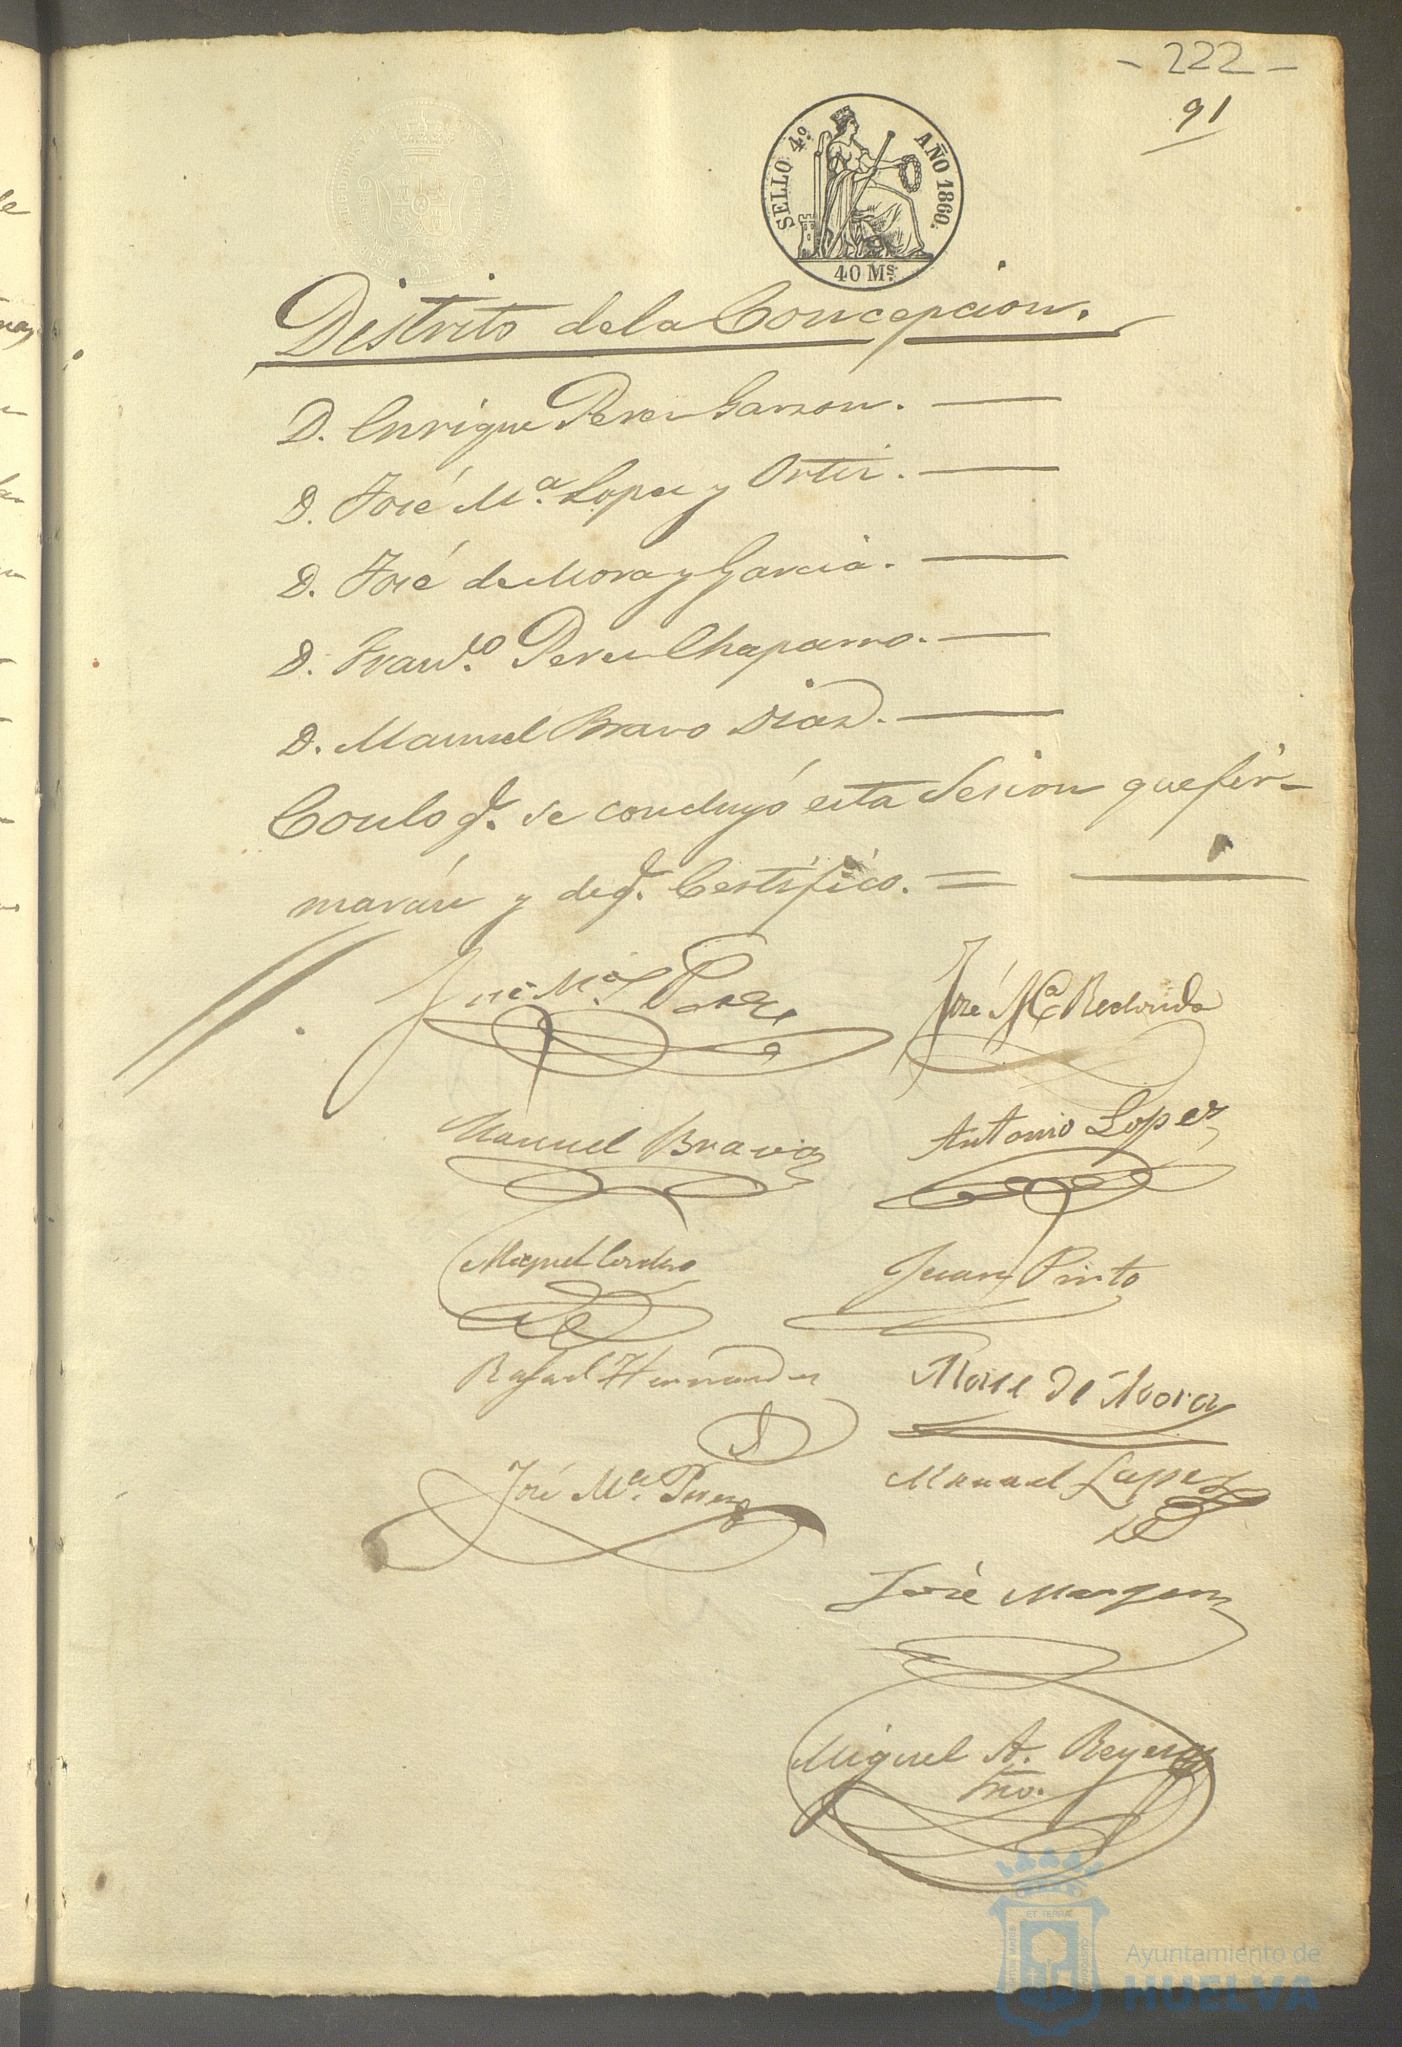 - 222 -
91
SELLO 4º. AÑO 1860.
40 Ms.
Distrito de la Concepcion.
D. Enrique Perez Garzon.
D. José Mª. Lopez y Ortiz.
D. José de Mora y García.
D. Franco. Perez Chaparro.
D. Manuel Bravo Diaz.
Con lo q. se concluyó esta Sesion que fir-
marán y de q. Certifico. =
José Mª. Perez
José Mª Redondo
Manuel Bravo
Antonio Lopez
Miguel Cordero
Juan Pinto
Rafael Hernandez
de Mora
José Mª. Perez
Manuel Lopez
José
Miguel A. Reyes
Srio.
Ayuntamiento de
HUELVA